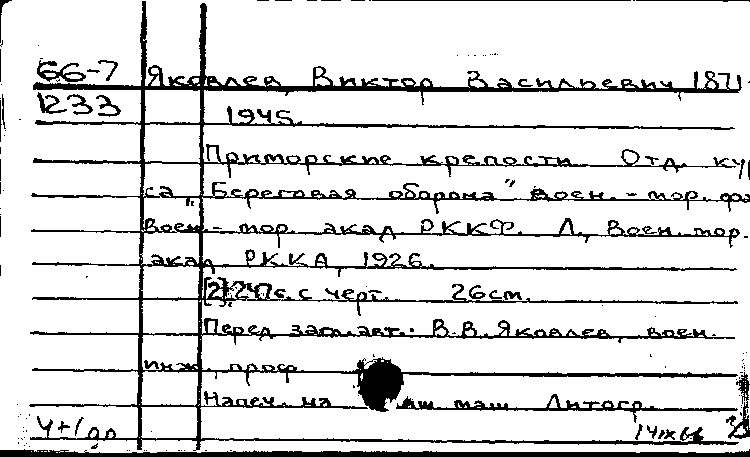 66-7 Яковлев, Виктор Васильевич, 1871-
1233 1945.
Приморские крепости. Отд. кур
са „Береговая оборона" воен.-мор. фа
Воен-мор. акад. РККФ. Л., Воен. мор.
акад. РККА, 1926.
[2], 247 с. с черт. 26 см.
Перед загл. авт.: В.В. Яковлев, воен.
инж., проф.
Напеч. на маш. Литогр.
4+1 дл 14 IX 66